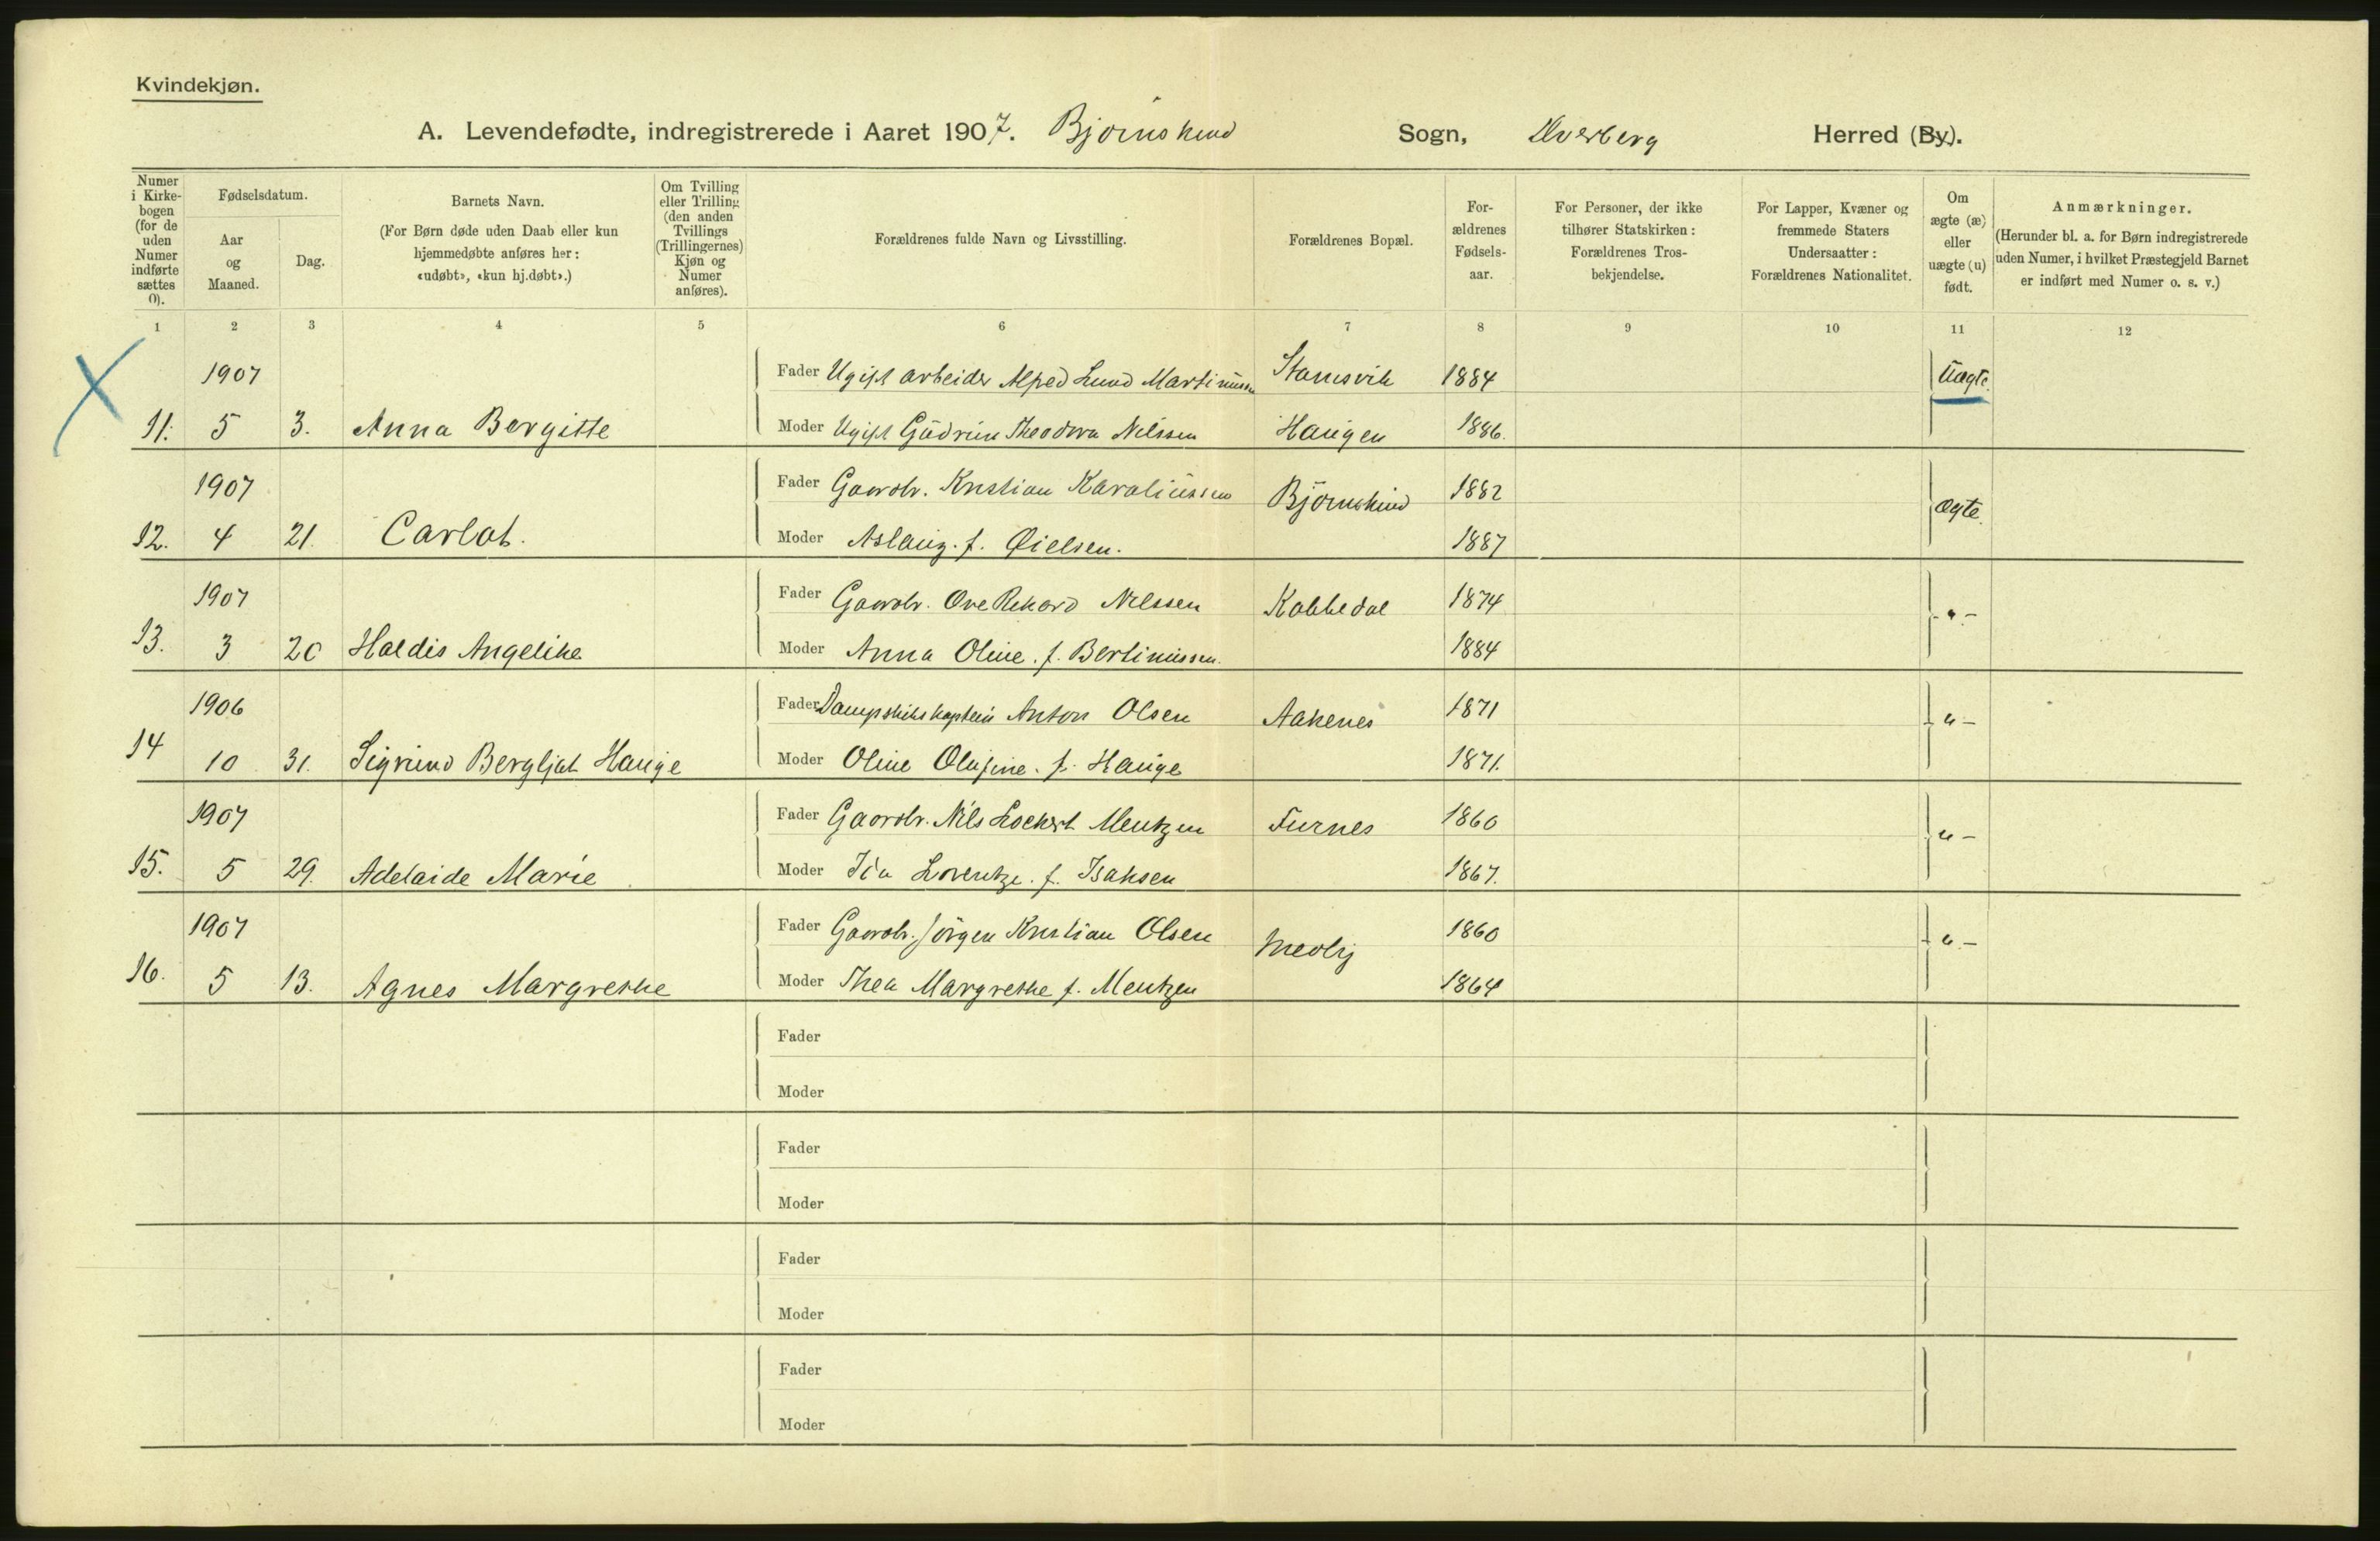 Kvindekjøn.
A. Levendefødte, indregistrerede i Aaret 1907. Bjørnskind Sogn, Dverberg Herred (By).
Numer i Kirkebogen (for de uden Numer indførte sættes 0).
Fødselsdatum.
Aar og Maaned.
Dag.
Barnets Navn.
(For Børn døde uden Daab eller kun hjemmedøbte anføres her: «udøbt», «kun hj.døbt».)
Om Tvilling eller Trilling (den anden Tvillings (Trillingernes) Kjøn og Numer anføres).
Forældrenes fulde Navn og Livsstilling.
Forældrenes Bopæl.
Forældrenes Fødselsaar.
For Personer, der ikke tilhører Statskirken: Forældrenes Trosbekjendelse.
For Lapper, Kvæner og fremmede Staters Undersaatter: Forældrenes Nationalitet.
Om ægte (æ) eller uægte (u) født.
Anmærkninger.
(Herunder bl. a. for Børn indregistrerede uden Numer, i hvilket Præstegjeld Barnet er indført med Numer o. s. v.)
1 2 3 4 5 6 7 8 9 10 11 12
1907 Fader Ugift arbeider Alfred Lund Martinussen Stamsvik 1884 Uægte.
11. 5 3. Anna Bergitte Moder Ugift Gudrun Theodora Nilssen Haugen 1886.
1907 Fader Gaardbr. Kristian Karoliussen Bjørnskind 1882 ægte.
12. 4 21. Carlot. Moder Aslaug. f. Eielsen. 1887
1907 Fader Gaardbr. Ove Rikard Nilssen Kobbedal 1874 - " -
13. 3 20 Haldis Angelike Moder Anna Oline. f. Bertinussen. 1884
1906 Fader Dampskibskaptein Anton Olsen Aakenes 1871 " -
14 10 31. Sigrund Bergljot Hauge Moder Oline Olufine. f. Hauge 1871.
1907 Fader Gaardbr. Nils Lockert Mentzen Furnes 1860 " -
15. 5 29. Adelaide Marie Moder Ida Lorentze. f. Isaksen 1867.
1907 Fader Gaardbr. Jörgen Kristian Olsen Medby 1860 " -
16. 5 13. Agnes Margrethe Moder Thea Margrethe f. Mentzen 1864
Fader
Moder
Fader
Moder
Fader
Moder
Fader
Moder